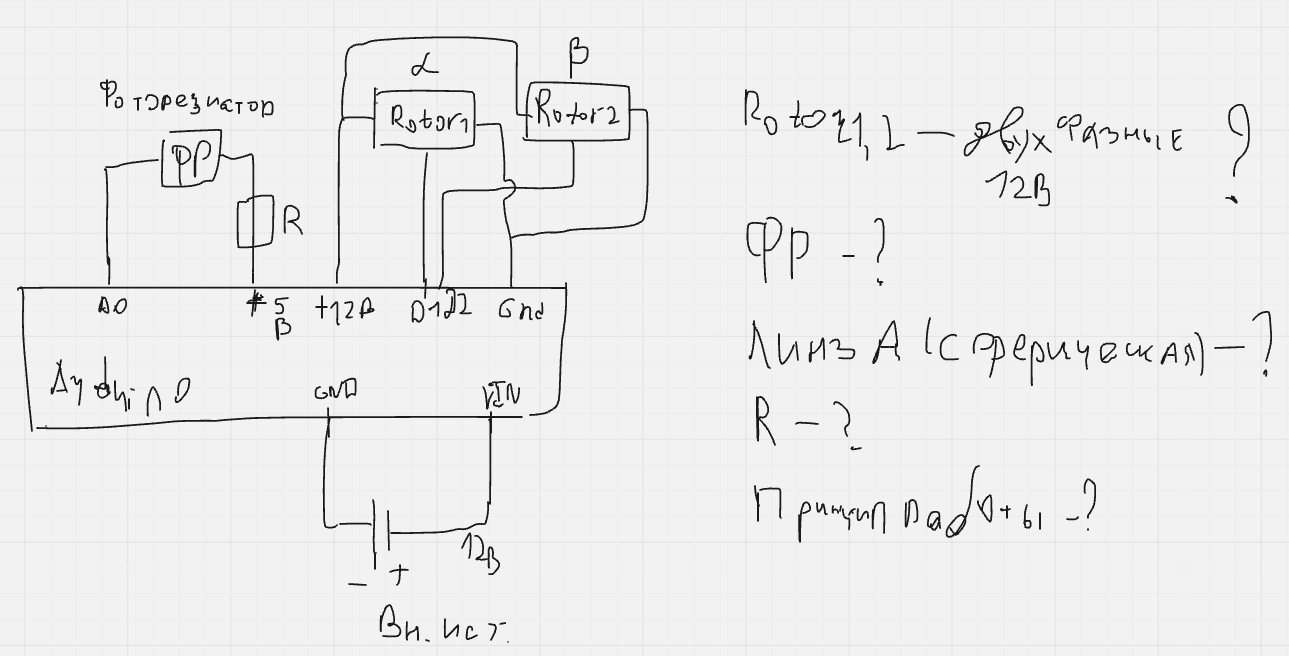 α
β
Фоторезистор
Rotor1
Rotor2
ФР
R
A0
+5
В
+12В
D1
D2
Gnd
Arduino
GND
VIN
12В
- +
Вн. ист.
Rotor1,2 - двухфазные ?
12В
ФР - ?
ЛинзА (сферическая) - ?
R - ?
Принцип работы - ?